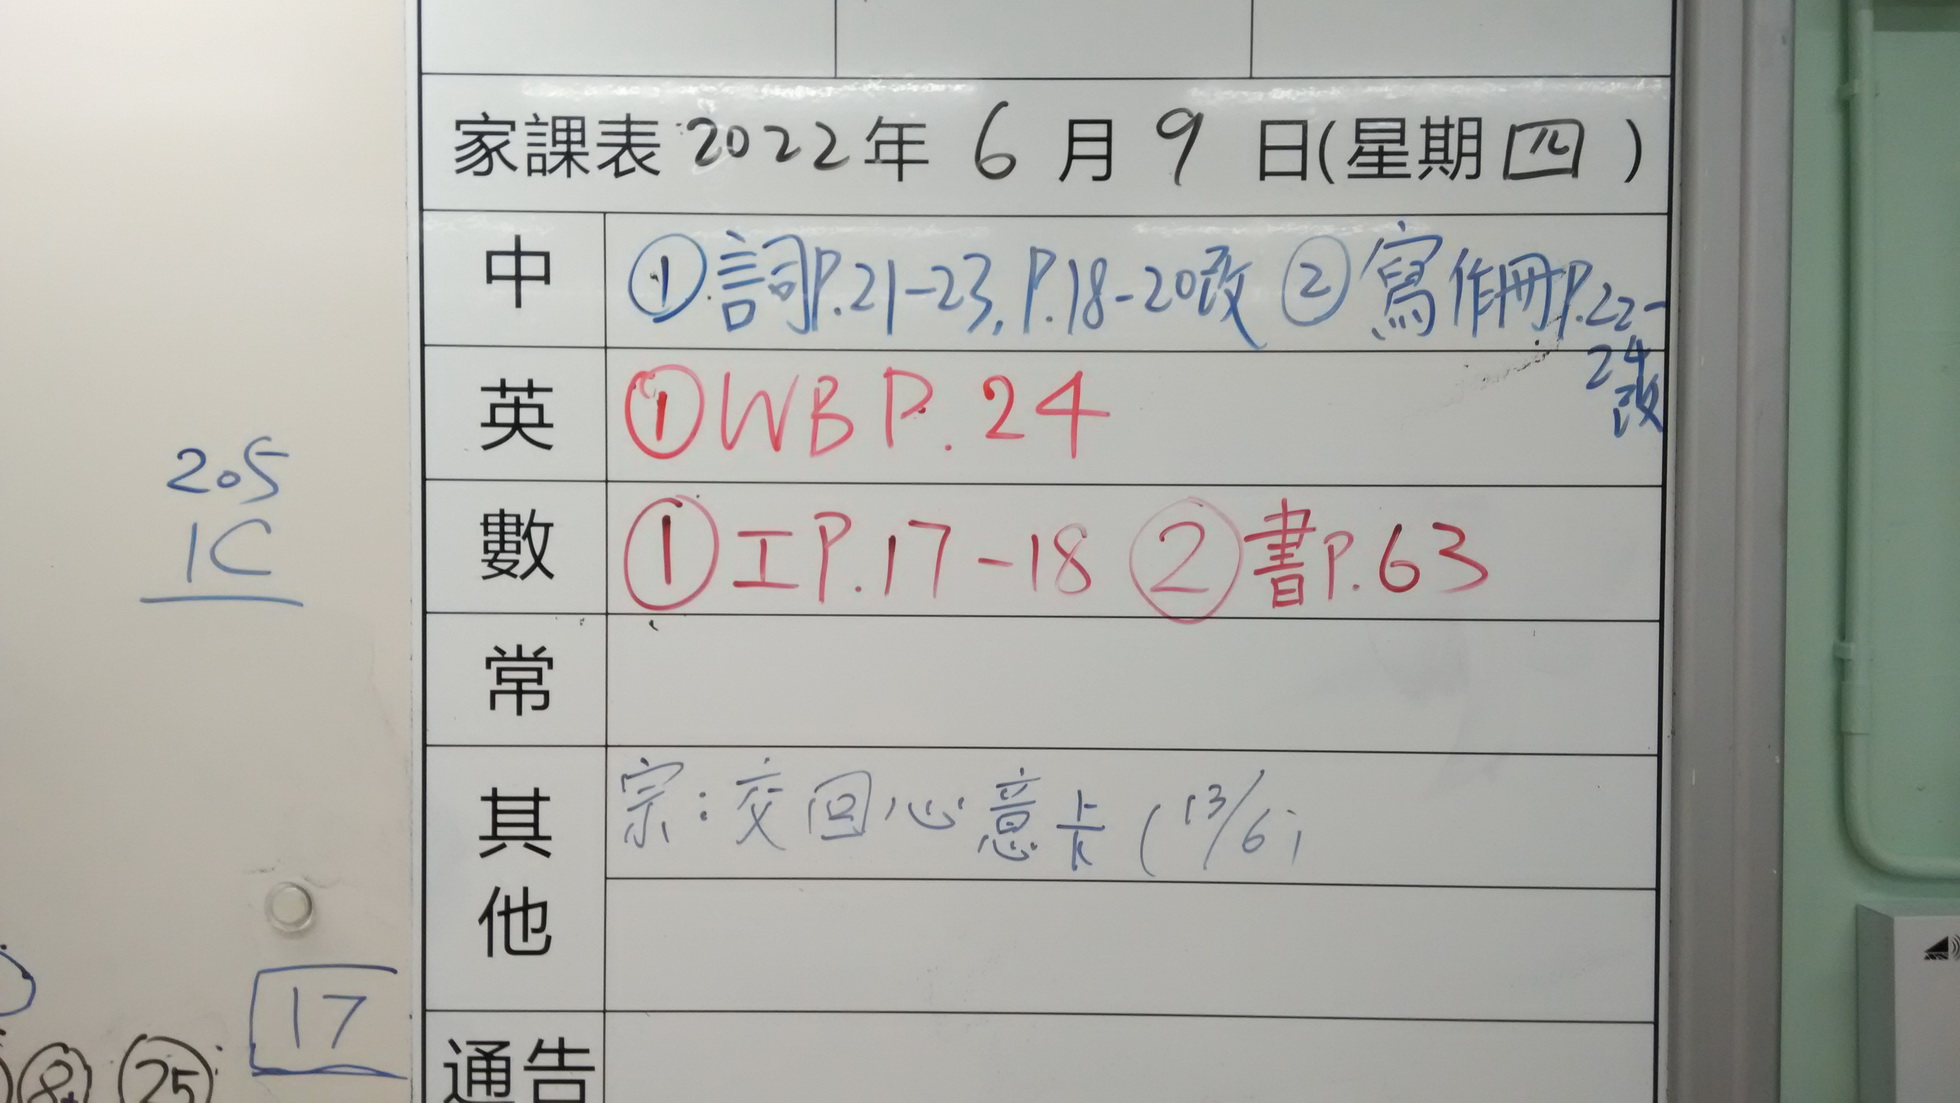 家課表 2022年 6 月 9 日(星期四)
中 ①詞P.21-23, P.18-20改 ②寫作冊P.22-
24
改
英 ①WB P.24
數 ①工P.17-18 ②書P.63
常
其他 宗：交回心意卡(13/6)
通告
205
1C
17
8
25